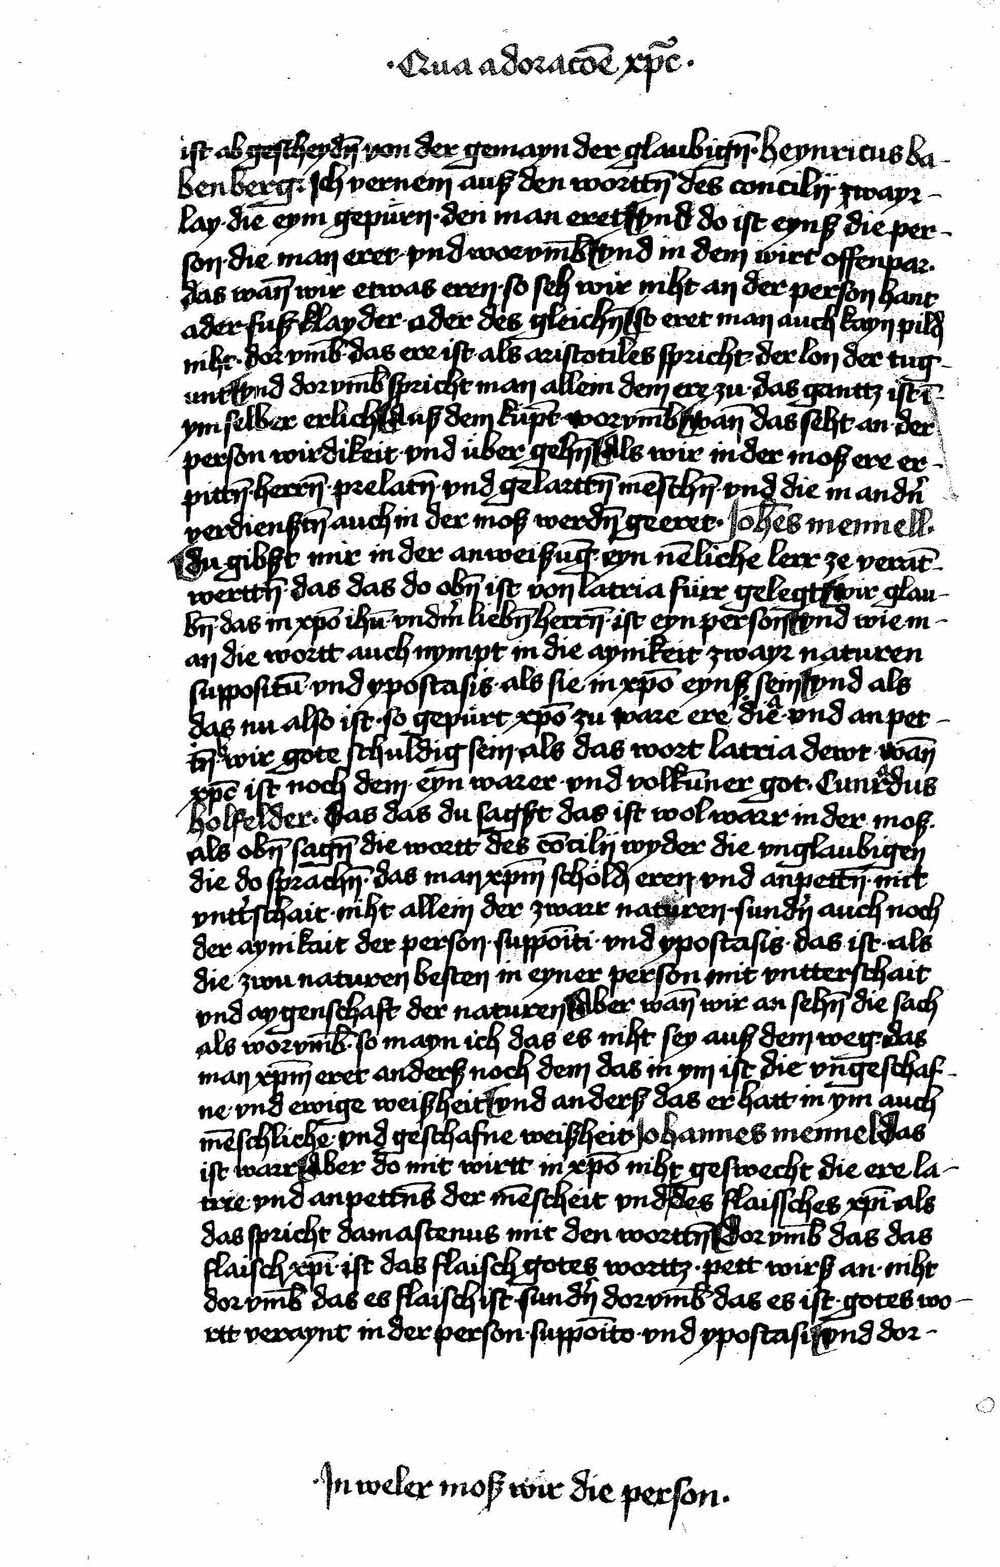 ·Qua adoracōe xp̄c·
ist ab gescheydn̄ von der gemayn der glaubign̄· heynricus ba-
benberg· Ich vernem auß den wortn̄ des concilij· zwayr-
lay· die eym gepürn· den man eret vnd do ist eynß die per-
son· die man eret· vnd worvmb̄ vnd in dem wirt offenpar·
das wan̄ wir etwas eren· so seh wir niht an der person hant
ader fuß· klayder· ader des gleichn̄ so eret man auch kayn pild
niht· dorvmb̄· das ere ist· als aristotiles spricht· der lon der tug-
unt vnd dorvmb̄ spricht man allein dem ere zu· das gantz ist ī-
ym selber erlich auß dem kūpt· worvmb̄ wan̄ das seht an· der
person wirdikeit· vnd über gehn̄ Als wir in der moß ere er-
pittn̄· herrn̄· prelatn̄· vnd gelarttn̄ mēschn̄· vnd die in andn̄
verdienßtn̄ auch in der moß werdn̄ geeret· Joh̄es mennell·
Du gibst mir in der anweißūg· eyn nēliche lerr ze verāt-
werttn̄· das das do obn̄ ist von latria fürr gelegt wir glau-
bn̄· das in xp̄o ih̄u· vndm̄ liebn̄ herrn̄· ist eyn person vnd wie m-
an die wortt auch nympt in die aynikeit zwayr naturen
suppositū· vnd ypostasis· als sie in xp̄o eynß sein vnd als
das nu also ist· so gepürt xp̄o zu ware ere· die· vnd an pet-
tn̄ wir gote schuldig sein· als das wort latria dewt· wan̄
xp̄c ist noch dem· eyn warer· vnd volkūner got· Cunrᵃdus
holfelder· Das das du sagst das ist wol warr in der moß·
als obn̄ sagn̄ die wortt des cōcilij wyder die vnglaubigen
die do sprachn̄· das man xp̄m schöld eren· vnd anpettn̄· mit
vntt̄schait· niht allein der zwarr naturen· sundn̄ auch noch
der aynikait der person· suppōiti· vnd ypostasis· das ist· als
die zwu naturen besten in eyner person mit vntterschait
vnd aygenschaft der naturen Aber wan̄ wir an sehn̄ die sach
als worvmb̄· so mayn ich das es niht sey auß dem weg· das
man xp̄m eret anderß noch dem das in ym ist die vngeschaf-
ne· vnd ewige weißheit vnd anderß das er hatt in ym auch
mēschliche· vnd geschafne weißheit Johannes mennel Das
ist warr Aber do mit wirtt in xp̄o niht geswecht die ere la-
trie· vnd anpettn̄s der mēscheit vnd des flaissches xp̄i· als
das spricht damascenus mit den worttn̄ dorvmb̄ das das
flaisch xp̄i· ist das flaisch gotes worttz· pett wirß an· niht
dorvmb̄ das es flaisch ist· sundn̄ dorvmb̄ das es ist· gotes wo-
rtt veraynt in der person· suppōito· vnd ypostasi vnd dor-
·In weler moß wir die person·